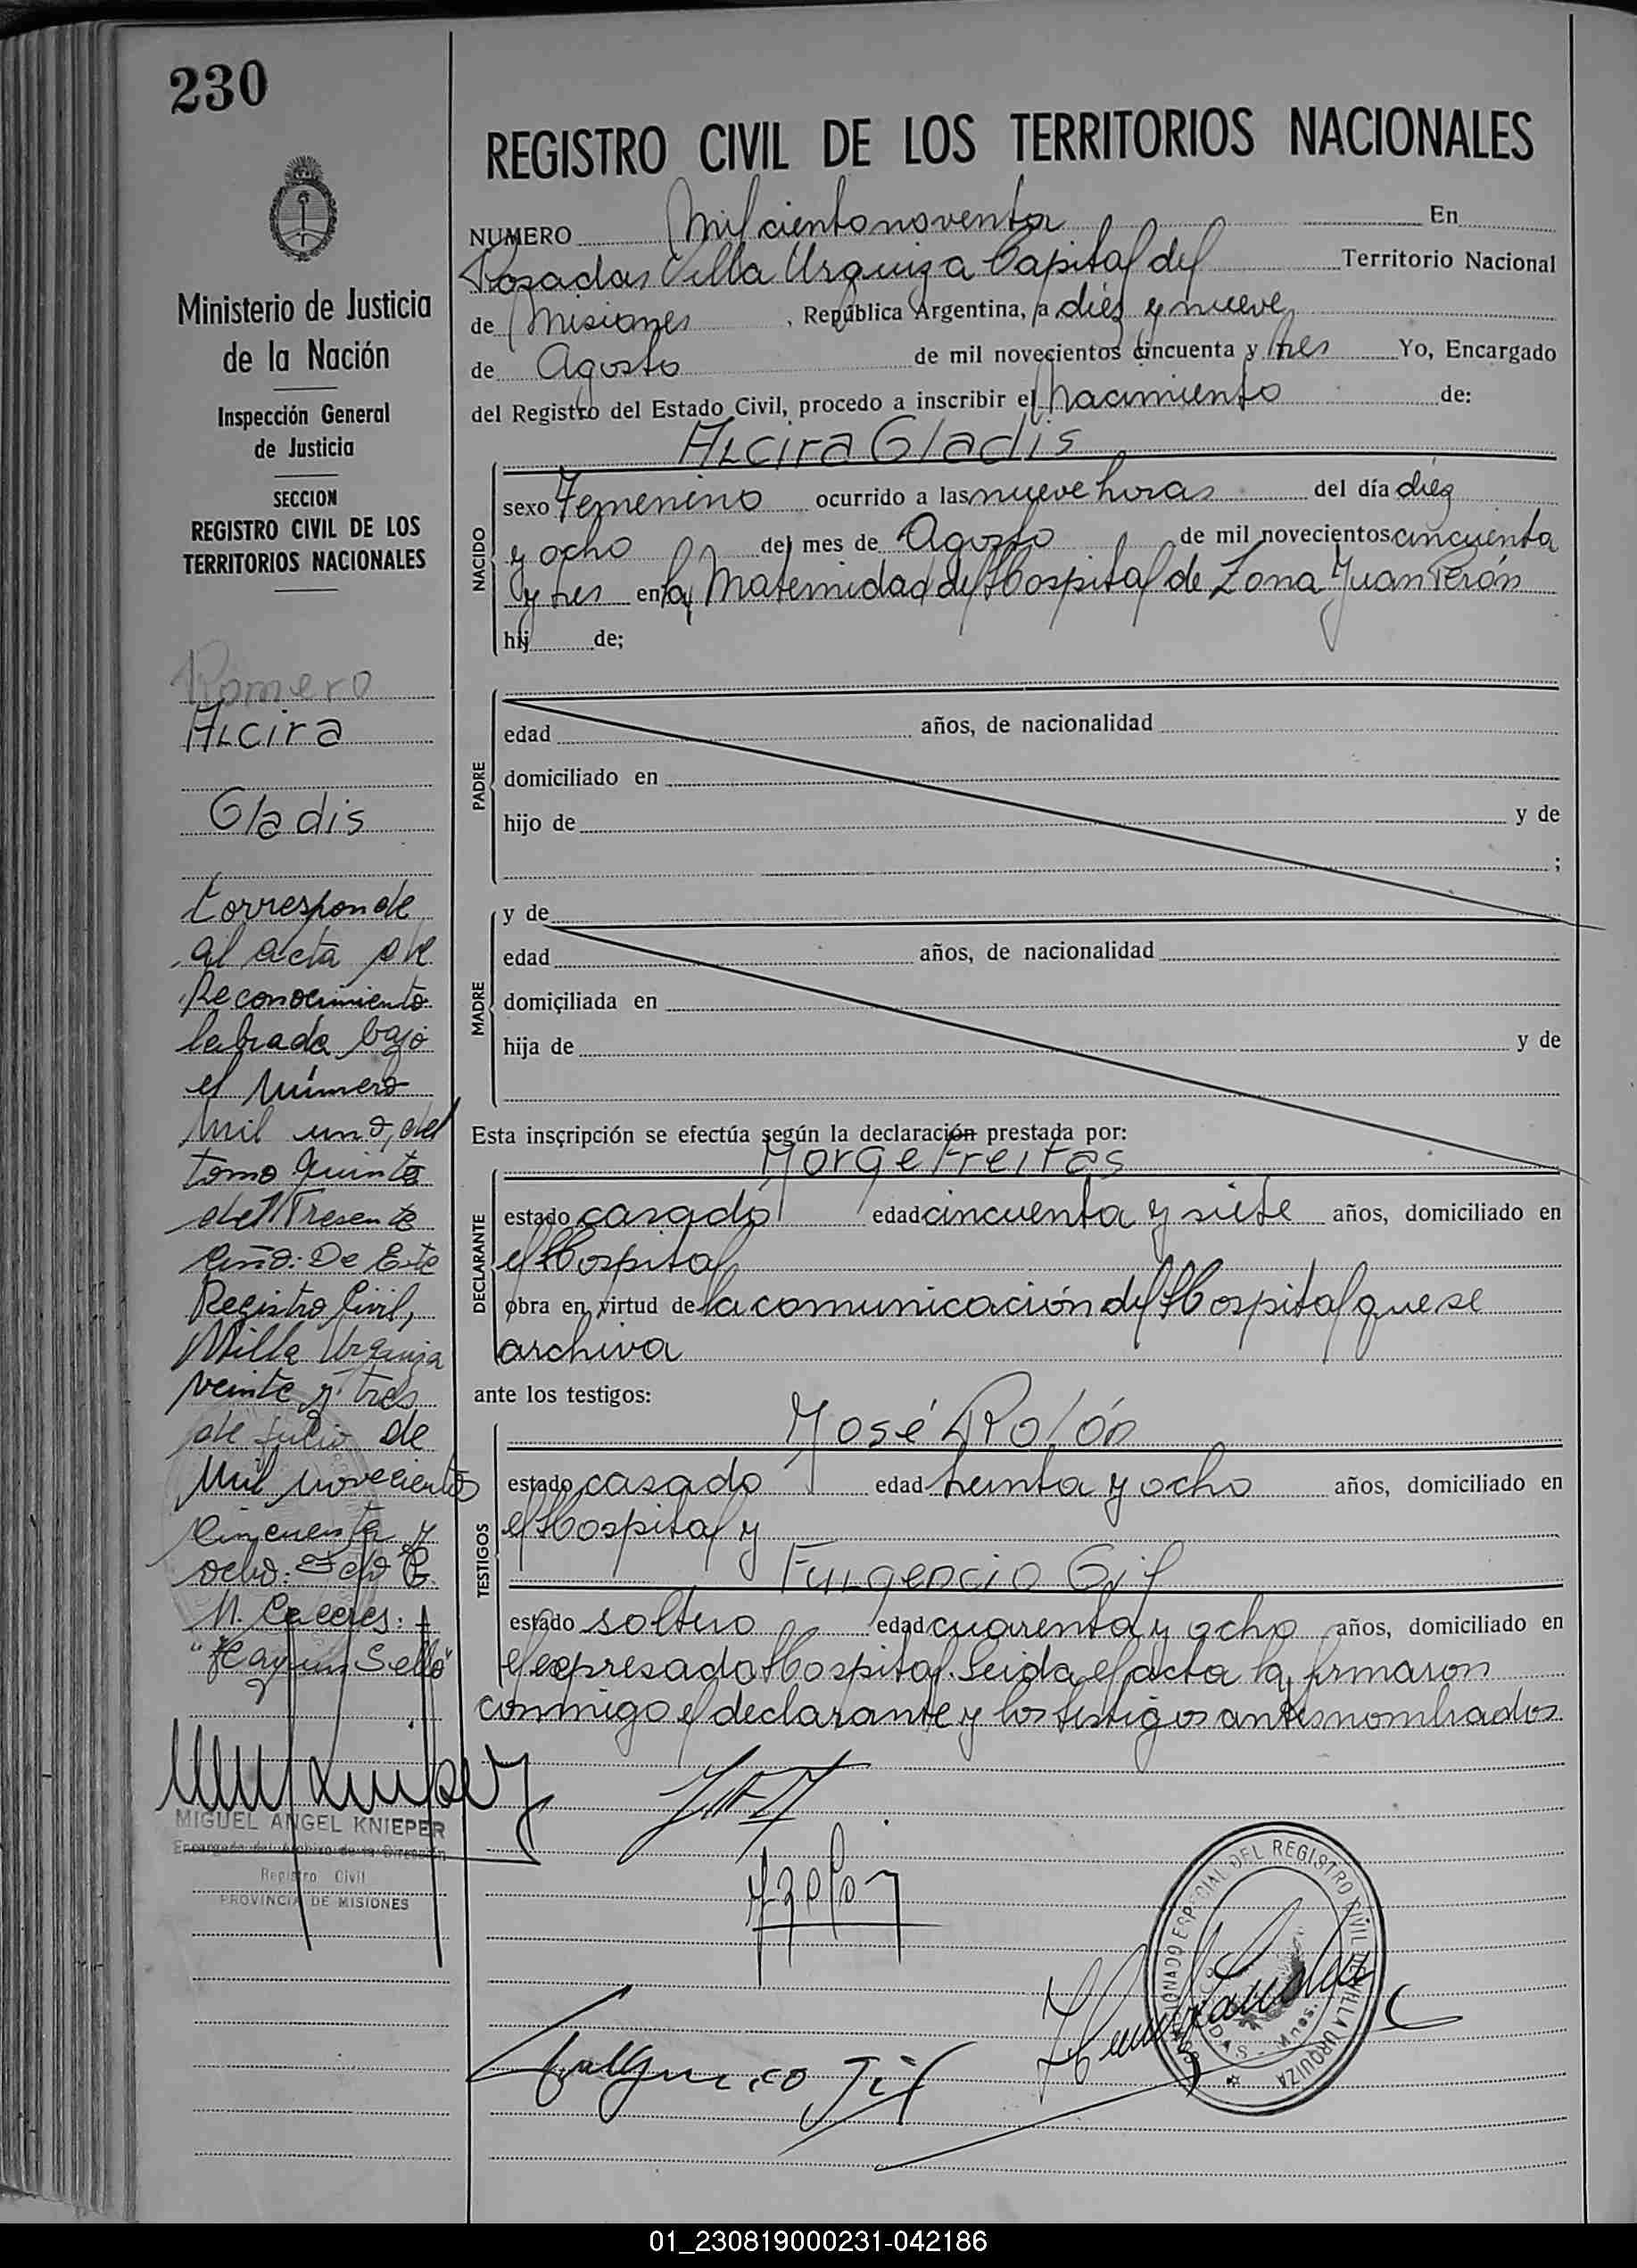 230
Ministerio de Justicia
de la Nación
Inspección General
de Justicia
SECCION
REGISTRO CIVIL DE LOS
TERRITORIOS NACIONALES
Romero
Alcira
Gladis
Corresponde
al acta de
Reconocimiento
labrada bajo
el Número
Mil uno, del
tomo quinto
del Presente
Año. De Este
Registro Civil,
Villa Urquiza
veinte y tres
de julio de
Mil novecientos
Cincuenta y
ocho:
N. Caceres:
"Hay un Sello"
MIGUEL ANGEL KNIEPER
Encargado del Archivo de la Dirección
Registro Civil
PROVINCIA DE MISIONES
REGISTRO CIVIL DE LOS TERRITORIOS NACIONALES
NUMERO Mil ciento noventa En
Posadas Villa Urquiza Capital del Territorio Nacional
de Misiones, República Argentina, a diez y nueve
de Agosto de mil novecientos cincuenta y tres Yo, Encargado
del Registro del Estado Civil, procedo a inscribir el nacimiento de:
Alcira Gladis
NACIDO
sexo Femenino ocurrido a las nueve horas del día diez
y ocho del mes de Agosto de mil novecientos cincuenta
y tres en la Maternidad del Hospital de Zona Juan Perón
hij de;
PADRE
edad años, de nacionalidad
domiciliado en
hijo de y de
;
MADRE
y de
edad años, de nacionalidad
domiciliada en
hija de y de
Esta inscripción se efectúa según la declaración prestada por:
Jorge Freitas
DECLARANTE
estado casado edad cincuenta y siete años, domiciliado en
el Hospital
obra en virtud de la comunicación del Hospital que se
archiva
ante los testigos:
José Rolón
TESTIGOS
estado casado edad treinta y ocho años, domiciliado en
el Hospital y
Fulgencio Gil
estado soltero edad cuarenta y ocho años, domiciliado en
el expresado Hospital. Leida el acta la firmaron
conmigo el declarante y los testigos antes nombrados
Fulgencio Gil
COMISIONADO ESPECIAL DEL REGISTRO CIVIL DE VILLA URQUIZA
POSADAS - Mnes.
01_230819000231-042186